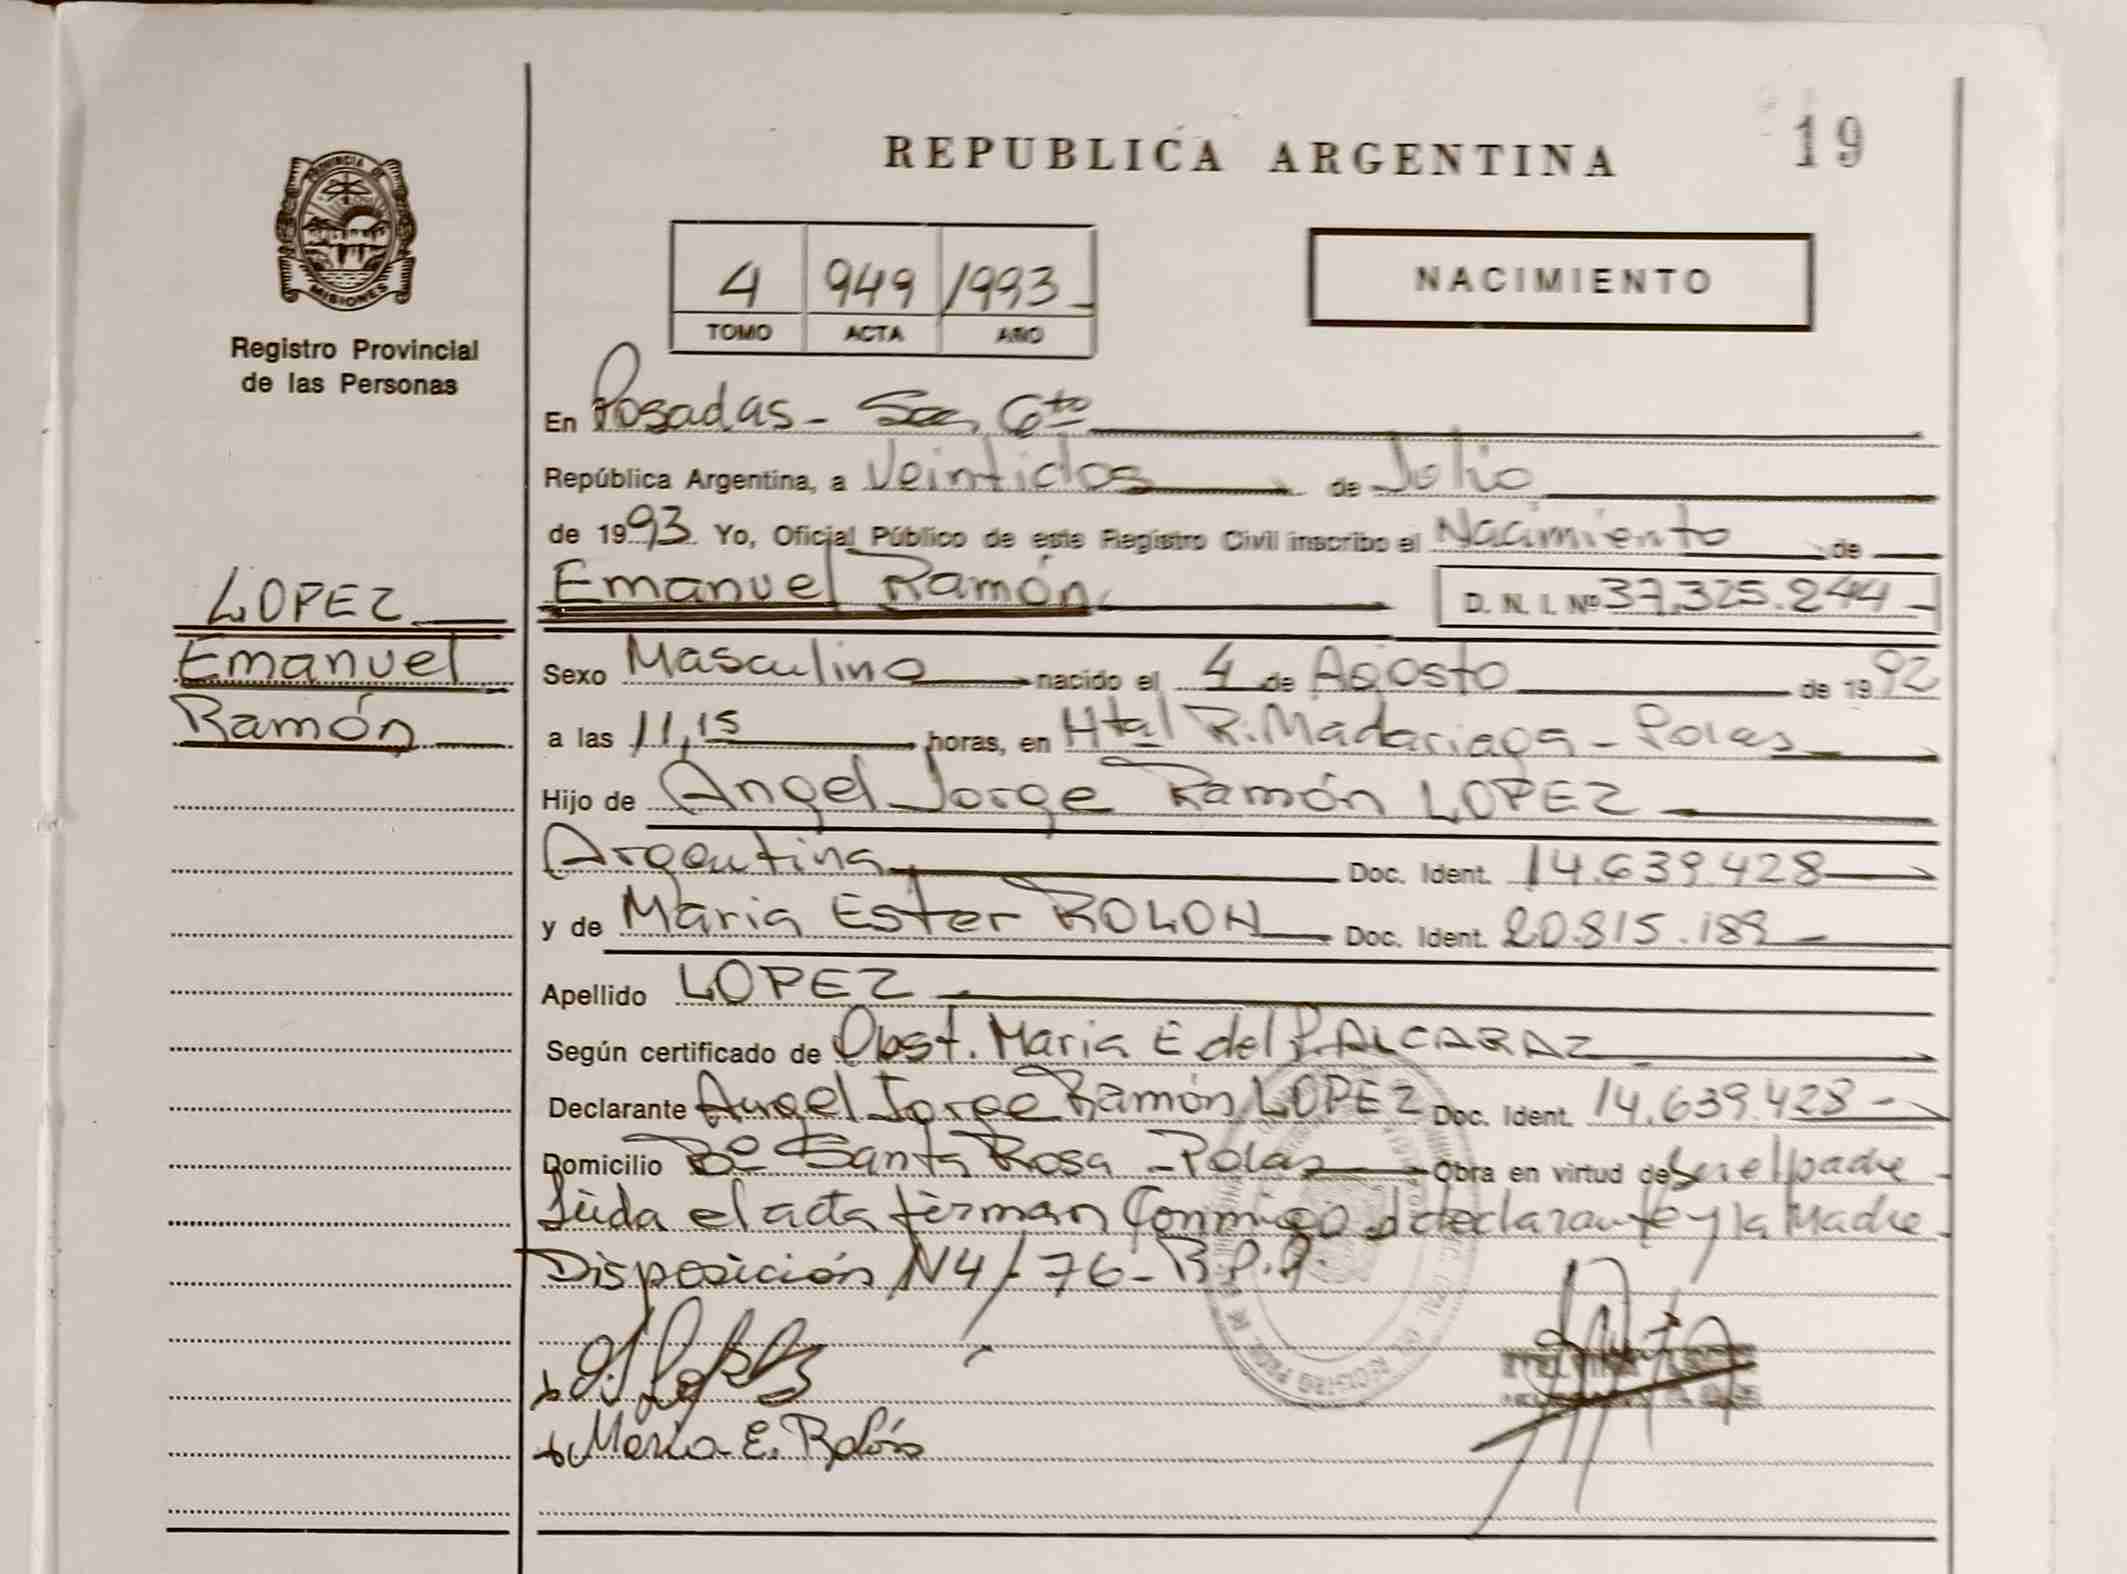 19
REPUBLICA ARGENTINA
PROVINCIA DE
MISIONES
Registro Provincial
de las Personas
4 949 1993
TOMO ACTA AÑO
NACIMIENTO
En Posadas - Sec. 6ta
República Argentina, a Veintidos de Julio
de 1993 Yo, Oficial Público de este Registro Civil inscribo el Nacimiento de
LOPEZ
Emanuel
Ramón
Emanuel Ramón D. N. I. Nº 37.325.244
Sexo Masculino nacido el 4 de Agosto de 1992
a las 11,15 horas, en Htal R. Madariaga - Pdas
Hijo de Angel Jorge Ramón LOPEZ
Argentina Doc. Ident. 14.639.428
y de Maria Ester ROLON Doc. Ident. 20.815.189
Apellido LOPEZ
Según certificado de Obst. Maria E del P. ALCARAZ
Declarante Angel Jorge Ramón LOPEZ Doc. Ident. 14.639.428
Domicilio Bº Santa Rosa - Pdas Obra en virtud de Ser el padre
Leida el acta firman Conmigo el declarante y la Madre
Disposición N4/76 - R.P.P.
Maria E. Rolón